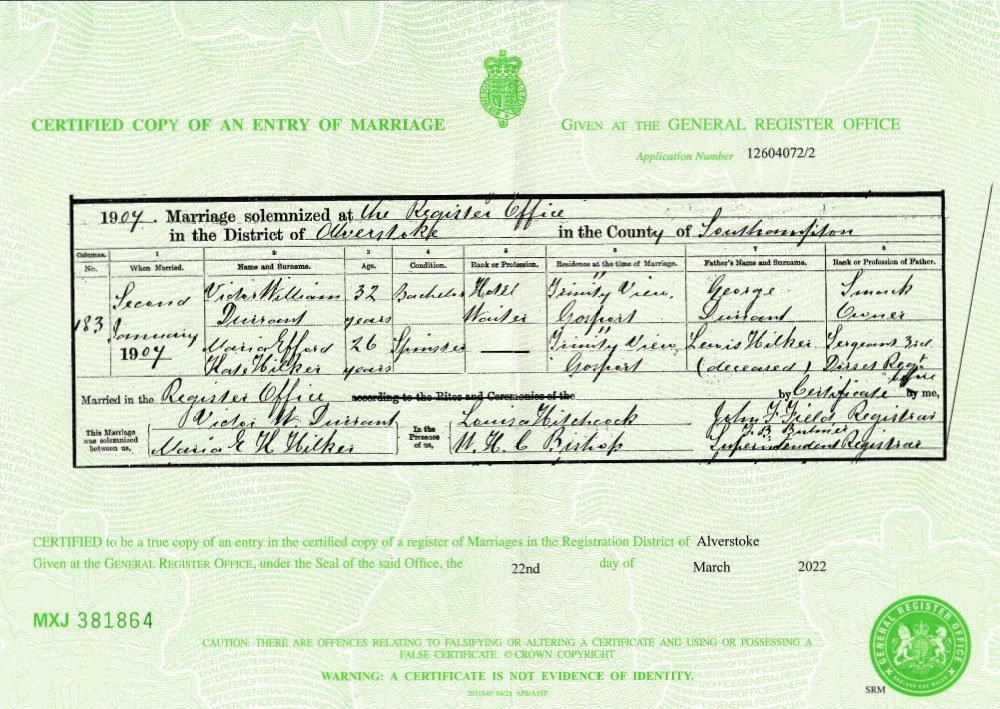 CERTIFIED COPY OF AN ENTRY OF MARRIAGE
GIVEN AT THE GENERAL REGISTER OFFICE
Application Number 12604072/2
1907. Marriage solemnized at the Register Office
in the District of Alverstoke in the County of Southampton
Columns. 1 2 3 4 5 6 7 8
No. When Married. Name and Surname. Age. Condition. Rank or Profession. Residence at the time of Marriage. Father's Name and Surname. Rank or Profession of Father.
183 Second January 1907
Victor William Durrant 32 years Bachelor Hotel Waiter Trinity View, Gosport George Durrant Smack Owner
Maria Efford Kate Hilker 26 years Spinster — Trinity View, Gosport Lewis Hilker (deceased) Sergeant 3rd Dorset Regt
Married in the Register Office according to the Rites and Ceremonies of the by Certificate before by me,
This Marriage was solemnized between us,
Victor W. Durrant
Maria E K Hilker
In the Presence of us,
Louisa Hitchcock
W. H. C Bishop
John F. Field Registrar
Superintendent Registrar
CERTIFIED to be a true copy of an entry in the certified copy of a register of Marriages in the Registration District of Alverstoke
Given at the GENERAL REGISTER OFFICE, under the Seal of the said Office, the 22nd day of March 2022
MXJ 381864
CAUTION: THERE ARE OFFENCES RELATING TO FALSIFYING OR ALTERING A CERTIFICATE AND USING OR POSSESSING A
FALSE CERTIFICATE. © CROWN COPYRIGHT
WARNING: A CERTIFICATE IS NOT EVIDENCE OF IDENTITY.
GENERAL REGISTER OFFICE
ENGLAND AND WALES
SRM